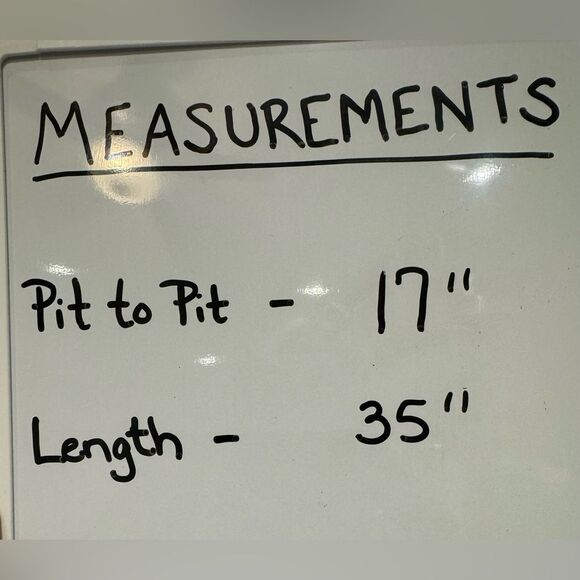 MEASUREMENTS
Pit to Pit - 17"
Length - 35"